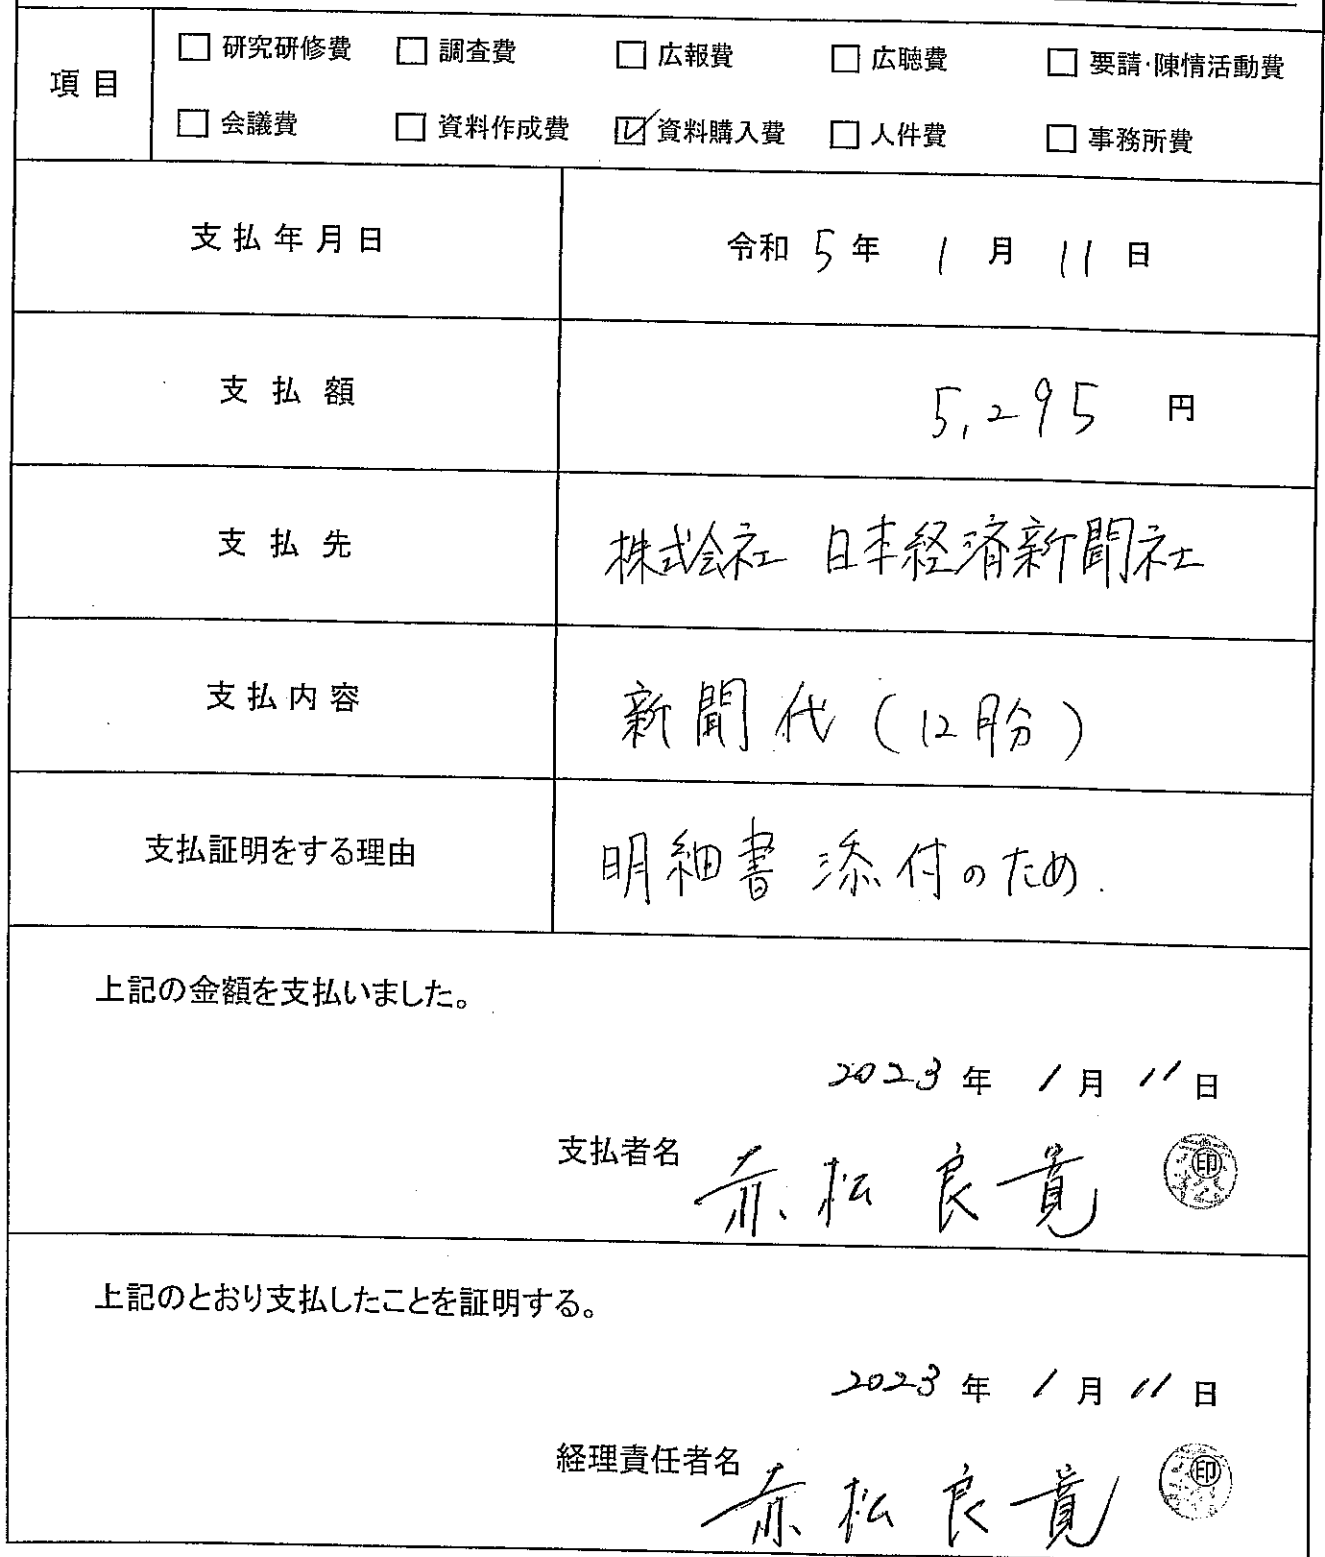 項目 □ 研究研修費 □ 調査費 □ 広報費 □ 広聴費 □ 要請・陳情活動費
□ 会議費 □ 資料作成費 ☑ 資料購入費 □ 人件費 □ 事務所費
支払年月日 令和 5 年 1 月 11 日
支払額 5,295 円
支払先 株式会社 日本経済新聞社
支払内容 新聞代(12月分)
支払証明をする理由 明細書添付のため.
上記の金額を支払いました。
2023 年 1 月 11 日
支払者名 赤松良寛 印
上記のとおり支払したことを証明する。
2023 年 1 月 11 日
経理責任者名 赤松良寛 印